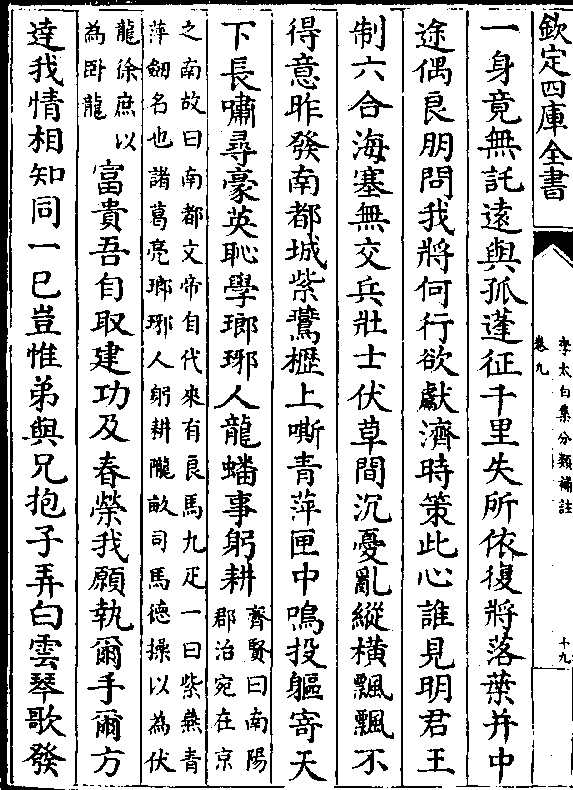 欽定四庫全書
李太白集分類補註
卷九
十九
一身竟無託遠與孤蓬征千里失所依復將落葉并中
途偶良朋問我將何行欲獻濟時策此心誰見明君王
制六合海塞無交兵壯士伏草間沉憂亂縱橫飄飄不
得意昨發南都城紫鷰櫪上嘶青萍匣中鳴投軀寄天
下長嘯尋豪英恥學瑯琊人龍蟠事躬耕
齊賢曰南陽
郡治宛在京
之南故曰南都文帝自代來有良馬九疋一曰紫燕青
萍劒名也諸葛亮瑯琊人躬耕隴畝司馬德操以為伏
龍徐庶以
為卧龍
富貴吾自取建功及春榮我願執爾手爾方
達我情相知同一已豈惟弟與兄抱子弄白雲琴歌發